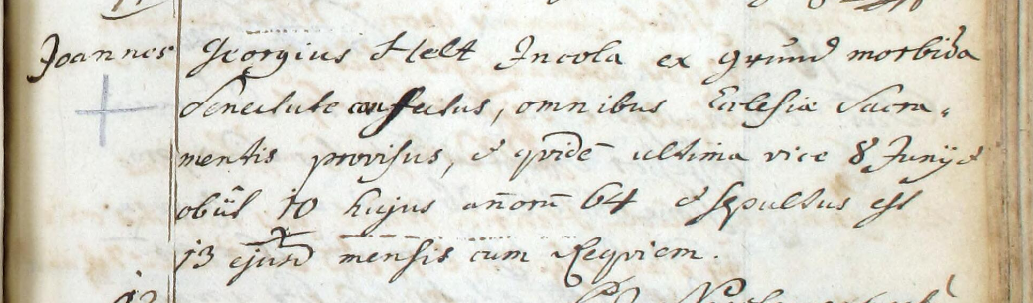 Joannes Georgius Helt Incola ex grund morbida
Senectute confectus, omnibus Ecclesiæ Sacra-
mentis provisus, & qvidē ultima vice 8 Junij &
obijt 10 hujus añorũ 64 & sepultus est
13 ejusd mensis cum Reqviem.